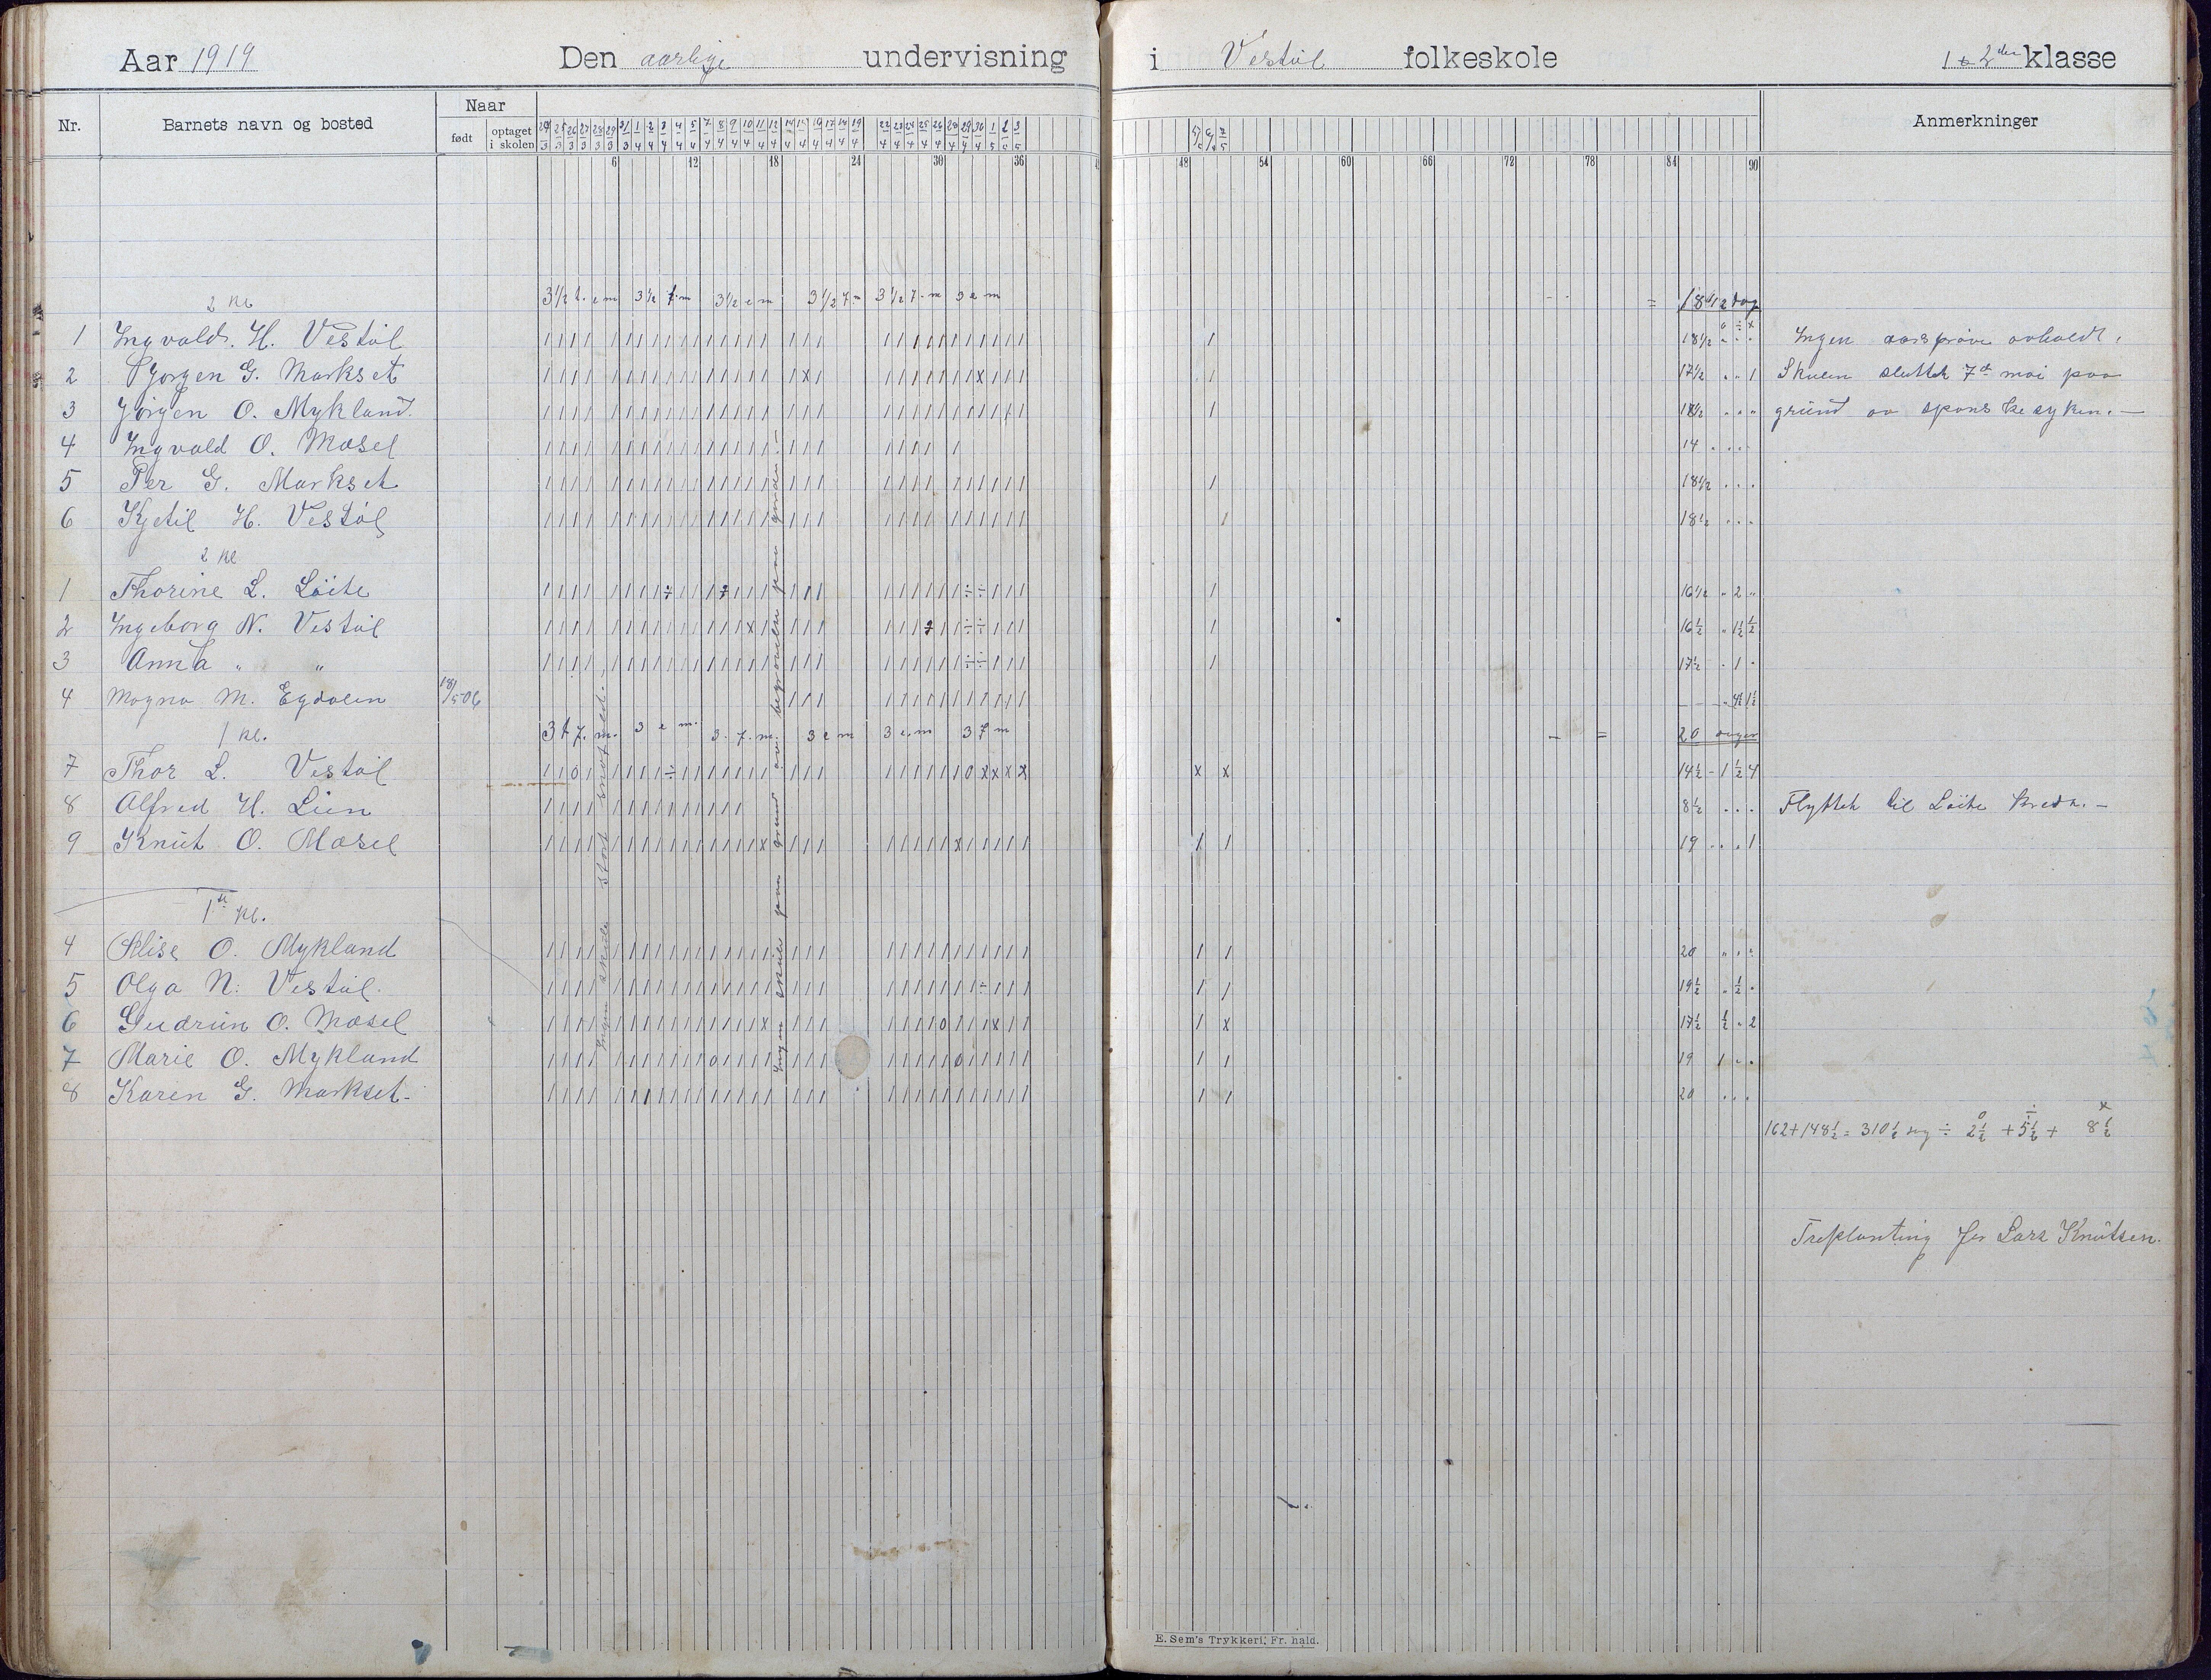 Aar 1919 Den aarlige undervisning i Vestøl folkeskole 1 & 2den klasse
Nr. Barnets navn og bosted Naar Anmerkninger
født optaget i skolen
6 12 18 24 30 36 48 54 60 66 72 78 84 90
2 kl 3 1/2 t. e m 3 1/2 f. m 3 1/2 e m 3 1/2 f. m 3 1/2 f. m 3 e m = 18 1/2 dag
1 Ingvald. H. Vestøl 18 1/2 Ingen aarsprøve avholdt.
2 Bjørgen G. Markset 17 1/2 " " 1 Skulen sluttet 7de mai paa
3 Jørgen O. Mykland. 18 1/2 " " " grund av spanske syken. —
4 Ingvald O. Mæsel 14
5 Per G. Markset 18 1/2
6 Kjetil H. Vestøl 18 1/2
2 kl
1 Thorine L. Löite 16 1/2 " 2 "
2 Ingeborg N. Vestøl 16 1/2 " 1 1/2 1/2
3 Anna " " 17 1/2 " 1 "
4 Magna M. Egdalen 18/5 06
1 kl. 3 t f. m. 3 e m. 3. f. m. 3 e m 3 e. m 3 f m — = 20 dager
7 Thor L. Vestøl 14 1/2 - 1 1/2 4
8 Alfred H. Lien 8 1/2 Flyttet til Löite kreds. —
9 Knut O. Mæsel 19 " " 1
1ste kl.
4 Elise O. Mykland 20 " " "
5 Olga N. Vestøl. 19 1/2 " 1/2 "
6 Gudrun O. Mæsel 17 1/2 1/2 " 2
7 Marie O. Mykland 19 1 " "
8 Karen G. Markset. 20
Ingen skule stort snøfald. —
Ingen skule paa grund av begravelse paa garden. —
162 + 148 1/2 = 310 1/2 ÷ 2 1/2 + 5 1/2 + 8 1/2
Treplanting for Lars Knutsen.
E. Sem's Trykkeri, Fr. hald.